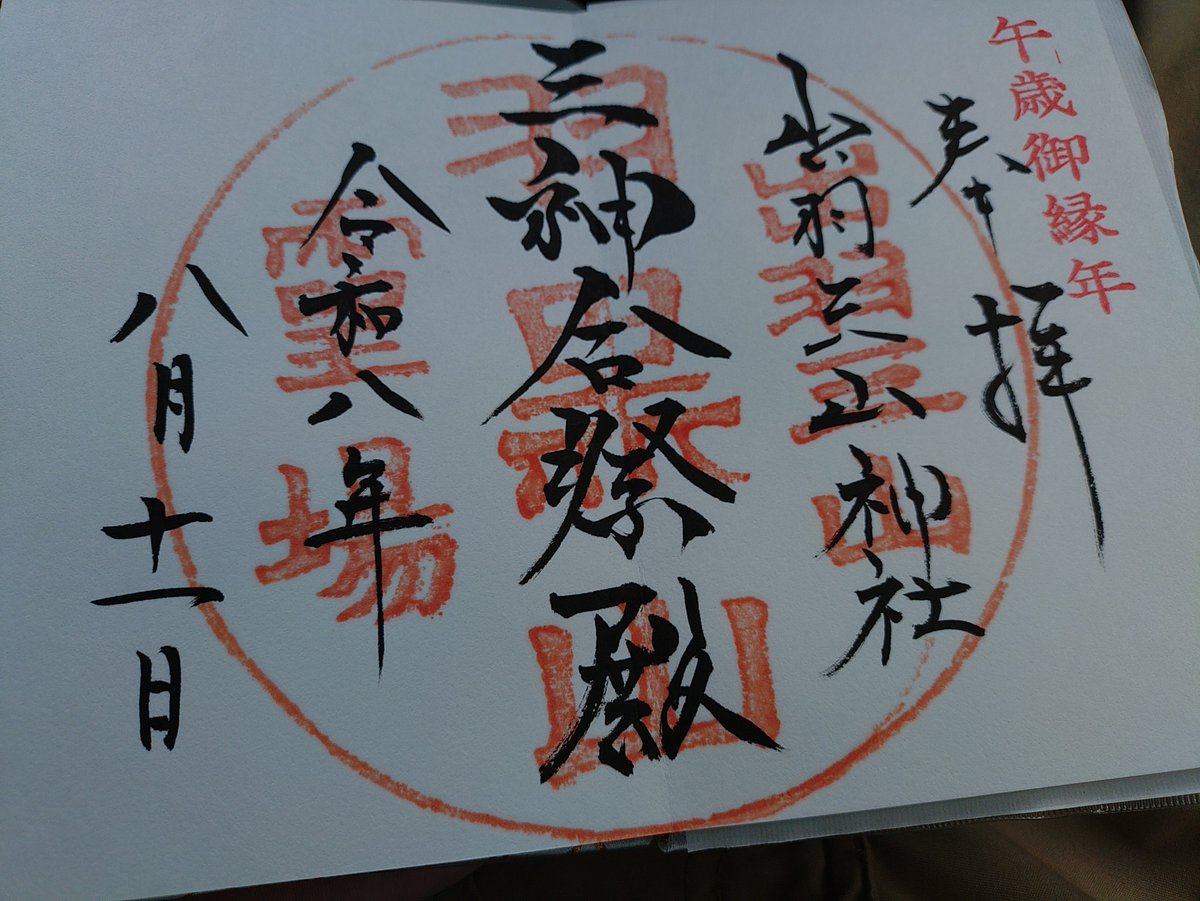 午歳御縁年
奉拝
出羽三山神社
出羽三山
三神合祭殿
羽黒山
令和八年
霊場
八月十一日